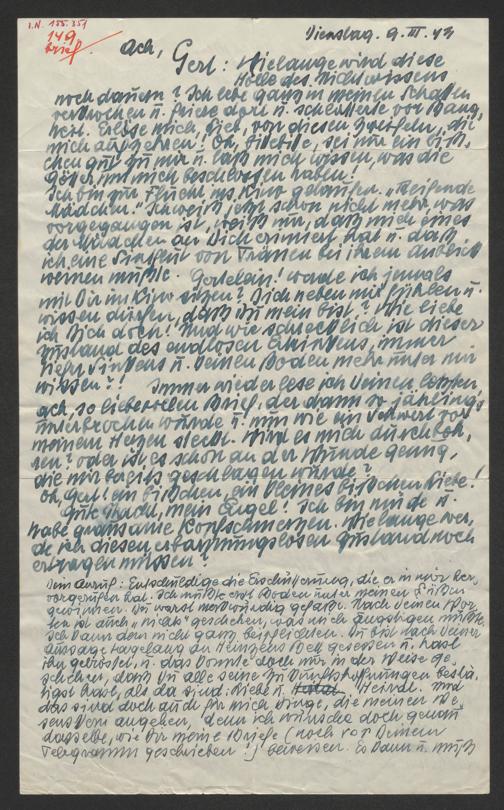 I.N. 155.351
149
Brief
Dienstag. 9. III. 43
Ach, Gert: Wielange wird diese
Hölle des Nichtwissens
noch dauern? Ich lebe ganz in meinen Schatten
verkrochen u. friere dort u. schlottere vor Bang,
heit. Erlöse mich, Lieb, von diesen Zweifeln, die
mich aufzehren! Oh, bitte bitte, sei nur ein biss,
chen gut zu mir u. lass mich wissen, was die
Götter mit mich beschlossen haben!
Ich bin zur Flucht ins Kino gelaufen. „Reifende
Mädchen." Ich weiss jetzt schon nicht mehr, was
vorgegangen ist, weiss nur, dass mich eines
der Mädchen an Dich erinnert hat u. dass
ich eine Sintflut von Tränen bei ihrem Anblick
weinen musste. Gertelein! werde ich jemals
mit Dir im Kino sitzen? Dich neben mir fühlen u.
wissen dürfen, dass Du mein bist? Wie liebe
ich Dich doch! Und wie schrecklich ist dieser
Zustand des endlosen Sinkens, immer
tiefer Sinkens u. keinen Boden mehr unter mir
wissen?! Immer wieder lese ich Deinen letzten,
ach, so liebevollen Brief, der dann so jählings
unterbrochen wurde u. nun wie ein Schwert vor
meinem Herzen steht. Wird es mich durchboh,
ren? oder ist es schon an der Wunde genug,
die mir bereits geschlagen wurde?
Oh, Gert! ein bisschen, ein kleines bisschen Liebe!
Gute Nacht, mein Engel! Ich bin müde u.
habe grausame Kopfschmerzen. Wielange wer,
de ich diesen erbarmungslosen Zustand noch
ertragen müssen?
Dein Anruf: Entschuldige die Erschütterung, die er in mir her,
vorgerufen hat. Ich musste erst Boden unter meinen Füssen
gewinnen. Du warst merkwürdig gefasst. Nach Deinen Wor,
ten ist auch „nichts" geschehen, was mich ängstigen müsste.
Ich kann dem nicht ganz beipflichten. Du bist nach Deiner
Aussage tagelang an Heinzens Bett gesessen u. hast
ihn getröstet, u. das konnte doch nur in der Weise ge,
schehen, dass Du alle seine Zukunftshoffnungen bestä,
tigst hast, als da sind: Liebe u. Heirat. Und
das sind doch auch für mich Dinge, die meiner We,
sens Kern angehen, denn ich wünsche doch genau
dasselbe, wie Dir meine Briefe (noch vor Deinem
Telegramm geschrieben!) beweisen. Es kann u. muss